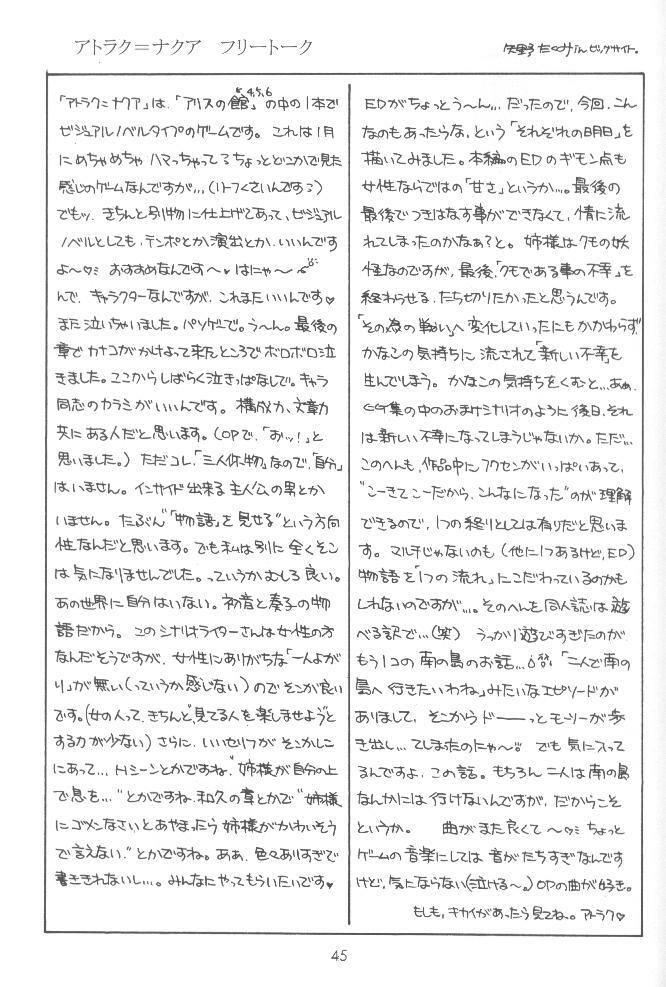 アトラク=ナクア フリートーク
矢野たくみinビッグサイト。
4,5,6
「アトラク=ナクア」は、「アリスの館」の中の1本で
ビジュアルノベルタイプのゲームです。これは1月
にめちゃめちゃハマっちゃってるちょっとどこかで見た
感じのゲームなんですが…(リトフくさいんです?)
でもッ、きちんと別物に仕上げてあって、ビジュアル
ノベルとしても、テンポとか演出とか、いいんです
よ〜♡ おすすめなんです〜♥はにゃ〜
んで、キャラクターなんですが、これまたいいんです♥
また泣いちゃいました。パソゲーで。う〜ん。最後の
章でカナコがかけよって来たところでボロボロ泣
きました。ここからしばらく泣きっぱなしで。キャラ
同志のカラミがいいんです。構成力、文章力
共にある人だと思います。(OPで、「おッ!」と
思いました。)ただコレ、「三人体物」なので、「自分」
はいません。インサイド出来る主人公の男とか
いません。たぶん“「物語」を見せる”という方向
性なんだと思います。でも私は別に全くそこ
は気になりませんでした。っていうかむしろ良い。
あの世界に自分はいない。初音と奏子の物
語だから。このシナリオライターさんは女性の方
なんだそうですが、女性にありがちな「一人よが
り」が無い(っていうか感じない)のでそこが良い
です。(女の人って、きちんと“見てる人を楽しませよう”と
する力が少ない)さらに、いいセリフがそこかしこ
にあって…、Hシーンとかですね。“姉様が自分の上
で息を…”とかですね、和久の章とかで“姉様
にゴメンなさいとあやまったら姉様がかわいそう
で言えない。”とかですね。ああ、色々ありすぎて
書ききれないし…。みんなにやってもらいたいです♥
EDがちょっとう〜ん…だったので、今回、こん
なのもあったらな、という「それぞれの明日」を
描いてみました。本編のEDのギモン点も
女性ならではの「甘さ」というか…。最後の
最後でつきはなす事ができなくて、情に流
れてしまったのかなぁ?と。姉様はクモの妖
怪なのですが、最後、「クモである事の不幸」を
終わらせる、たち切りたかったと思うんです。
「その為の戦い」へ変化していったにもかかわらず、
かなこの気持ちに流されて「新しい不幸」を
生んでしまう。かなこの気持ちをくむと…あぁ、
CG集の中のおまけシナリオのように後日、それ
は新しい不幸になってしまうじゃないか。ただ…
このへんも、作品中にフクセンがいっぱいあって、
“こーきてこーだから、こんなになった”のが理解
できるので、1つの終りとしては有りだと思いま
す。マルチじゃないのも(他に1つあるけど、ED)
物語を「1つの流れ」にこだわっているのかも
しれないのですが…。そのへんを同人誌は遊
べる訳で…(笑) うっかり遊びすぎたのが
もう1コの南の島のお話…「二人で南の
島へ行きたいわね」みたいなエピソードが
ありまして、そこからドーーっとモーリーが歩
き出し…てしまったのにゃ〜 でも気に入って
るんですよ、この話。もちろん二人は南の島
なんかには行けないんですが、だからこそ
というか。 曲がまた良くて〜♡ちょっと
ゲームの音楽にしては音がたちすぎなんです
けど、気にならない(泣ける〜。)OPの曲が好き。
もしも、キカイがあったら見てね。アトラク♡
45